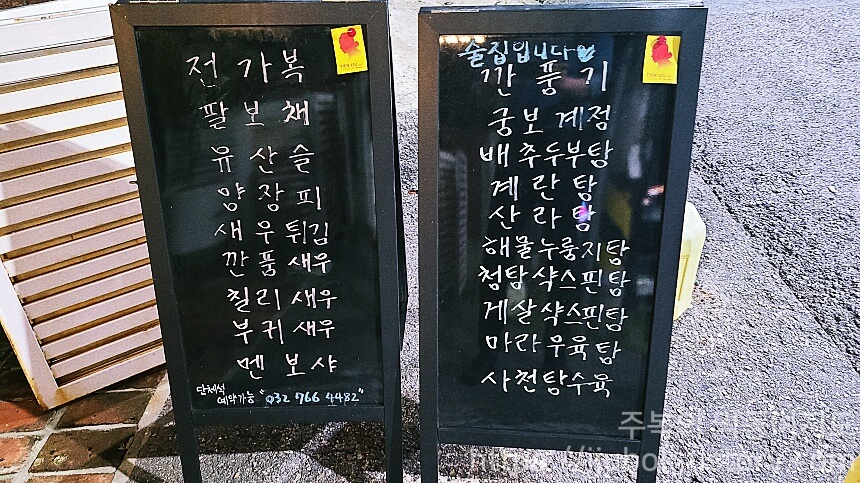 전가복
팔보채
유산슬
양장피
새우튀김
깐풍새우
칠리새우
부귀새우
멘보샤
단체석
예약가능 "032 766 4482"
술집입니다♥
깐풍기
궁보계정
배추두부탕
계란탕
산라탕
해물누룽지탕
청탕샥스핀탕
게살샥스핀탕
마라우육탕
사천탕수육